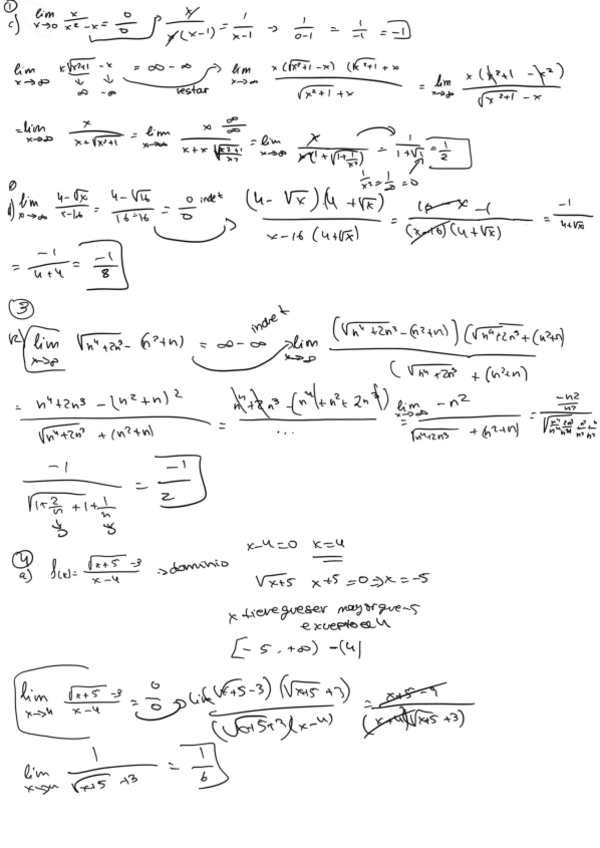 ①
c) lim x→0 x/(x²-x) = 0/0 x/(x(x-1)) = 1/(x-1) → 1/(0-1) = 1/-1 = -1
lim x→∞ x√(x²+1) - x = ∞ - ∞ restar lim x→∞ x(√(x²+1) - x) (√(x²+1) + x / √(x²+1) + x = lim x→∞ x(x²+1 - x²) / √(x²+1) - x
∞ -∞
= lim x→∞ x/(x+√(x²+1)) = lim x→∞ x ∞/∞ / x+x√(x²+1/x²) = lim x→∞ x / x(1+√(1+1/x²)) = 1/(1+√1) = 1/2
1/x² = 1/∞ = 0
d) lim x→∞ (4-√x)/(x-16) = (4-√16)/(16-16) = 0/0 indet (4-√x)(4+√x) / x-16(4+√x) = 16-x -1 / (x-16)(4+√x) = -1/(4+√x)
= -1/(4+4) = -1/8
③
k) lim n→∞ √(n⁴+2n³) - (n²+n) = ∞ - ∞ indet lim n→∞ (√(n⁴+2n³) - (n²+n)) (√(n⁴+2n³) + (n²+n) / (√(n⁴+2n³) + (n²+n)
= n⁴+2n³ - (n²+n)² / √(n⁴+2n³) + (n²+n) = n⁴+2n³ - (n⁴+n²+2n³) / ... lim n→∞ = -n² / √(n⁴+2n³) + (n²+n) = -n²/n²
-1 / √(1+2/n) + 1 + 1/n = -1/2
0 0
④
a) f(x) = (√(x+5) - 3)/(x-4) → dominio x-4=0 x=4
√x+5 x+5=0 ⇒ x=-5
x tiene que ser mayor que -5
excepto el 4
[-5, +∞) - (4)
lim x→4 (√(x+5) - 3)/(x-4) = 0/0 → lim (√(x+5) - 3)(√(x+5) + 3) / (√(x+5) + 3)(x-4) = x+5-9 / (x-4)(√(x+5) + 3)
lim x→4 1/(√(x+5) + 3) = 1/6